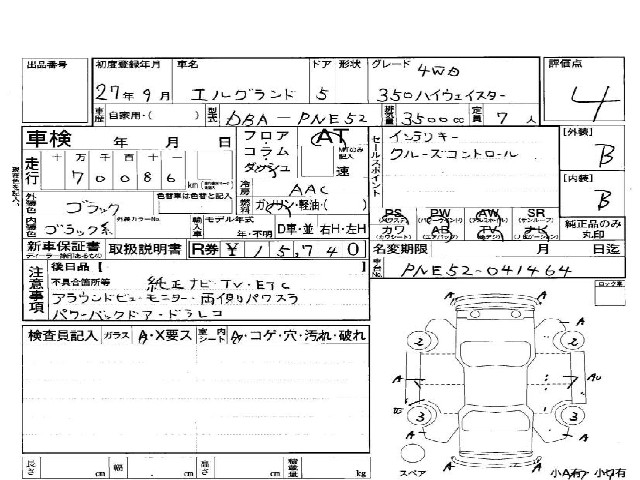 出品番号 初度登録年月 車名 ドア 形状 グレード 評価点
27年9月 エルグランド 5 4WD 350ハイウェイスター 4
車歴 自家用・( ) 型式 DBA-PNE52 排気量 3500cc 定員 7人
車検 年 月 日 フロア コラム ダッシュ AT 速 セールスポイント インテリキー [外装] B
走行 十 万 千 百 十 一 クルーズコントロール
70086 km 冷房 AAC [内装] B
外装色 ブラック 色替車は色替と記入 燃料 ガソリン・軽油・( ) PS PW AW SR
内装色 ブラック系 外装カラーNo. 輸入車 モデル年式 年・不明 D車・並 右H・左H カワ AB TV ナビ 純正品のみ丸印
新車保証書 取扱説明書 R券 ¥15,740 名変期限 月 日迄
注意事項 後日品 [ ] 車台No. PNE52-041464
不具合箇所等 純正ナビ・TV・ETC ロック有
アラウンドビューモニター・両側パワスラ
パワーバックドア・ドラレコ
検査員記入 ガラス A・X要ス 室内シート A・コゲ・穴・汚れ・破れ
A
2 2
A A
A A
3 3
A A
長さ cm 幅 cm 高さ cm 積載量 kg スペア A 小A有 小ワ有